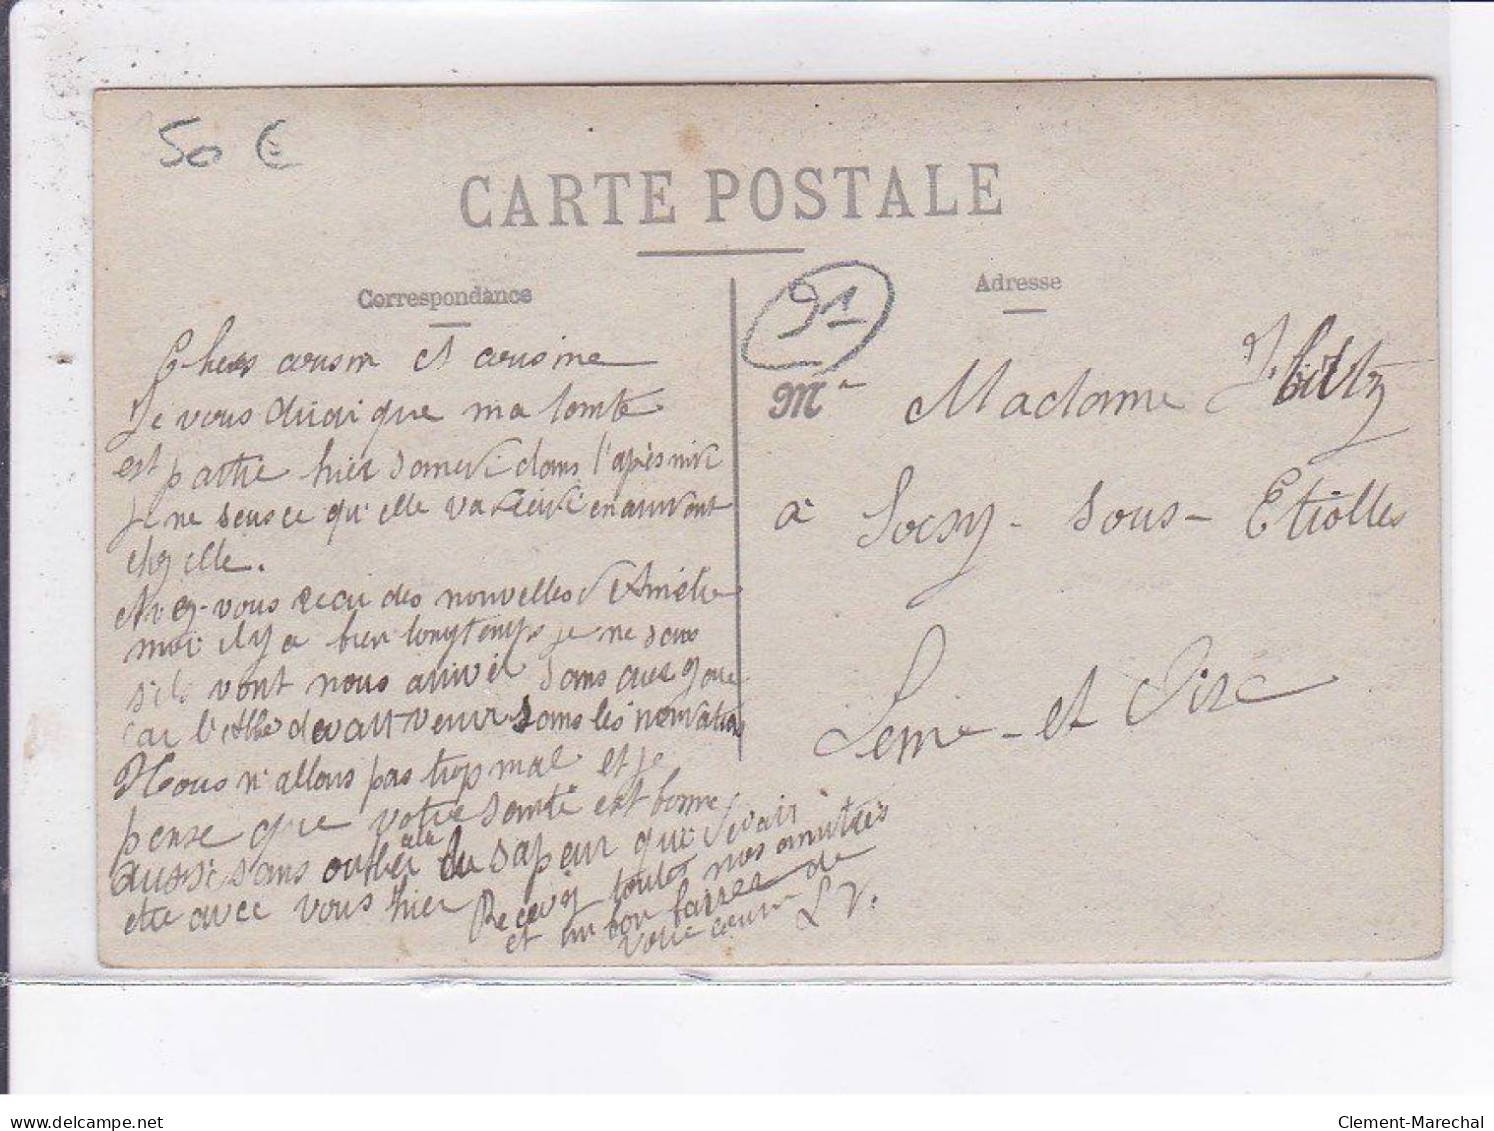 50 €
CARTE POSTALE
Correspondance
Chers cousin et cousine
Je vous dirai que ma tante
est partie hier samedi dans l'après midi
Je ne sens ce qu'elle va en arrivant
chez elle.
Avez-vous des nouvelles d'Amélie
moi il y a bien longtemps je ne sans
s'ils vont nous arriver sans jour
car l'Abbé devait venir sans les
Nous n'allons pas trop mal et je
pense que votre santé est bonne
aussi sans oublier du sapeur qui devair
etre avec vous hier Recevez toutes nos amitiés
et un bon baiser de
votre cousin L V.
91
Adresse
M Madame
à Soisy-sous-Etiolles
Seine-et Oise
delcampe.net
Clement-Marechal